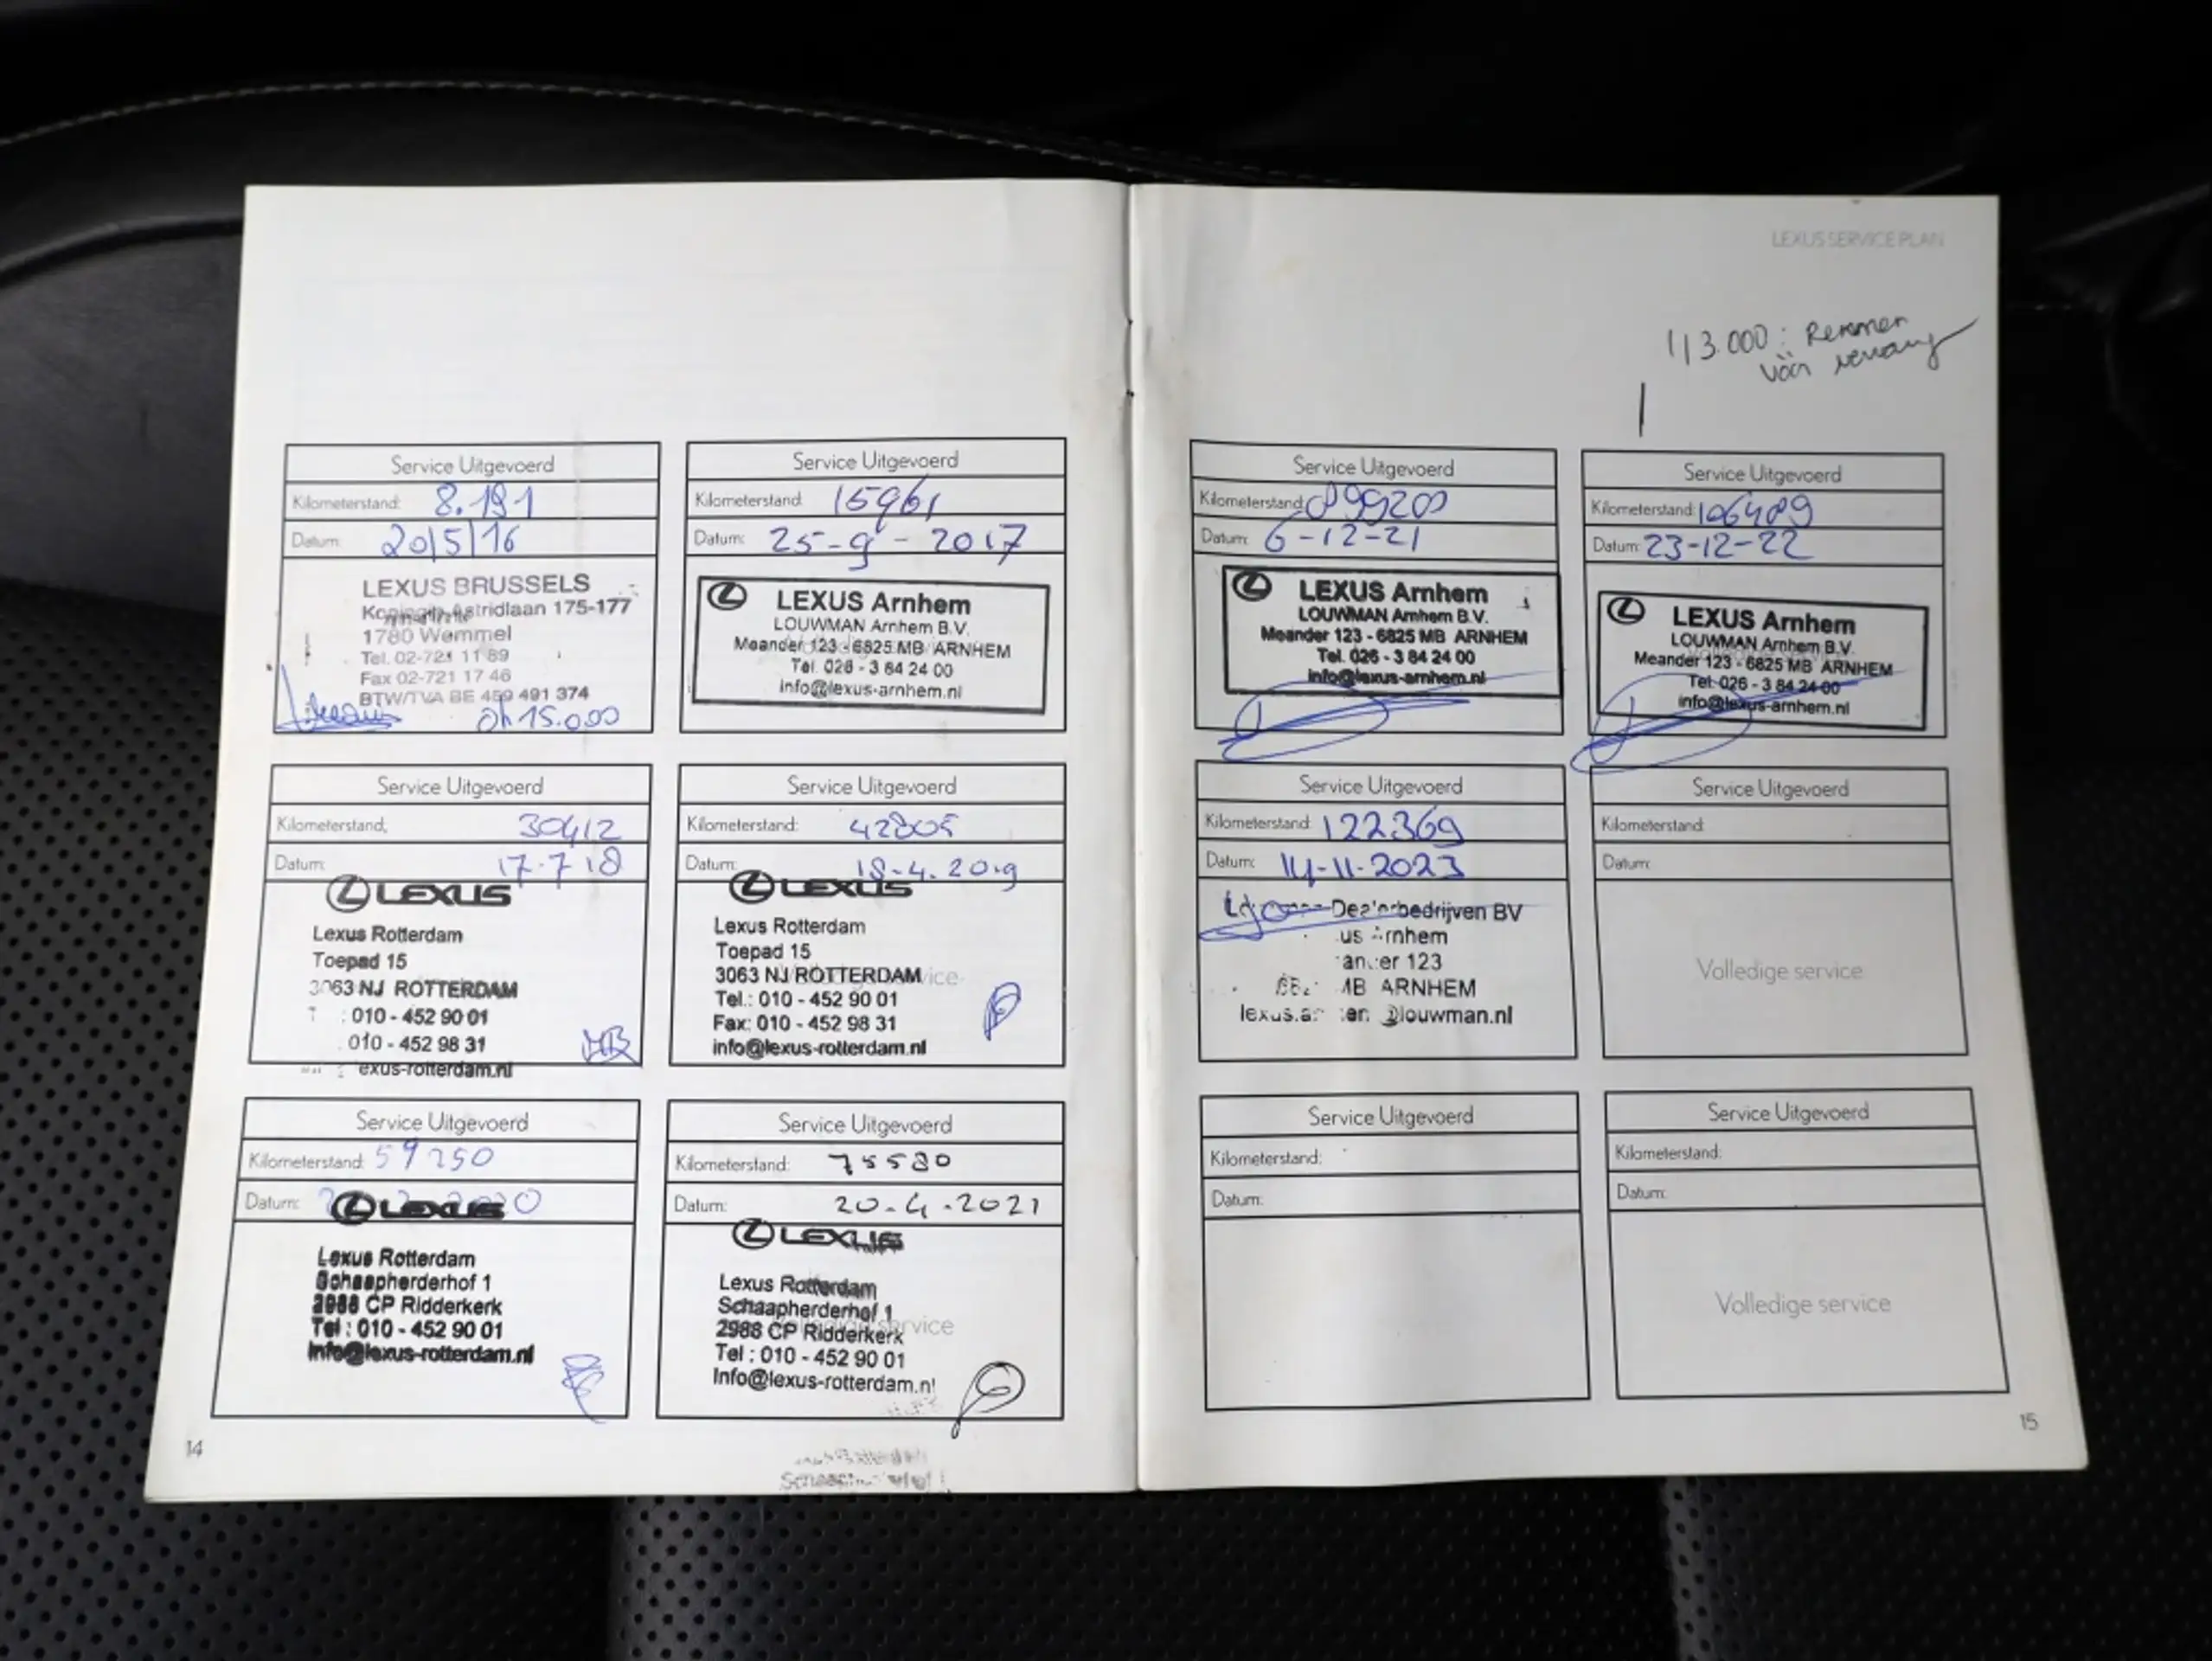 LEXUS SERVICE PLAN
113.000: Remmen
vóór vervang
Service Uitgevoerd
Kilometerstand: 8.191
Datum: 20/5/16
LEXUS BRUSSELS
Koningin Astridlaan 175-177
1780 Wemmel
Tel. 02-721 11 89
Fax 02-721 17 46
BTW/TVA BE 459 491 374
15.000
Service Uitgevoerd
Kilometerstand: 15961
Datum: 25-9-2017
LEXUS Arnhem
LOUWMAN Arnhem B.V.
Meander 123 - 6825 MB ARNHEM
Tel. 026 - 3 84 24 00
info@lexus-arnhem.nl
Service Uitgevoerd
Kilometerstand: 30412
Datum: 17-7-18
LEXUS
Lexus Rotterdam
Toepad 15
3063 NJ ROTTERDAM
: 010 - 452 90 01
010 - 452 98 31
exus-rotterdam.nl
Service Uitgevoerd
Kilometerstand: 42805
Datum: 18-4.2019
LEXUS
Lexus Rotterdam
Toepad 15
3063 NJ ROTTERDAM
Volledige service
Tel.: 010 - 452 90 01
Fax: 010 - 452 98 31
info@lexus-rotterdam.nl
Service Uitgevoerd
Kilometerstand: 59250
Datum:
LEXUS
Lexus Rotterdam
Schaapherderhof 1
2988 CP Ridderkerk
Tel : 010 - 452 90 01
Info@lexus-rotterdam.nl
Service Uitgevoerd
Kilometerstand: 75580
Datum: 20-4-2021
LEXUS
Lexus Rotterdam
Schaapherderhof 1
Volledige service
2988 CP Ridderkerk
Tel : 010 - 452 90 01
Info@lexus-rotterdam.nl
14
Service Uitgevoerd
Kilometerstand: 099200
Datum: 6-12-21
LEXUS Arnhem
LOUWMAN Arnhem B.V.
Meander 123 - 6825 MB ARNHEM
Tel. 026 - 3 84 24 00
info@lexus-arnhem.nl
Service Uitgevoerd
Kilometerstand: 106489
Datum: 23-12-22
LEXUS Arnhem
LOUWMAN Arnhem B.V.
Meander 123 - 6825 MB ARNHEM
Tel. 026 - 3 84 24 00
info@lexus-arnhem.nl
Service Uitgevoerd
Kilometerstand: 122369
Datum: 14-11-2023
Dealerbedrijven BV
us Arnhem
ander 123
MB ARNHEM
@louwman.nl
Service Uitgevoerd
Kilometerstand:
Datum:
Volledige service
Service Uitgevoerd
Kilometerstand:
Datum:
Service Uitgevoerd
Kilometerstand:
Datum:
Volledige service
15